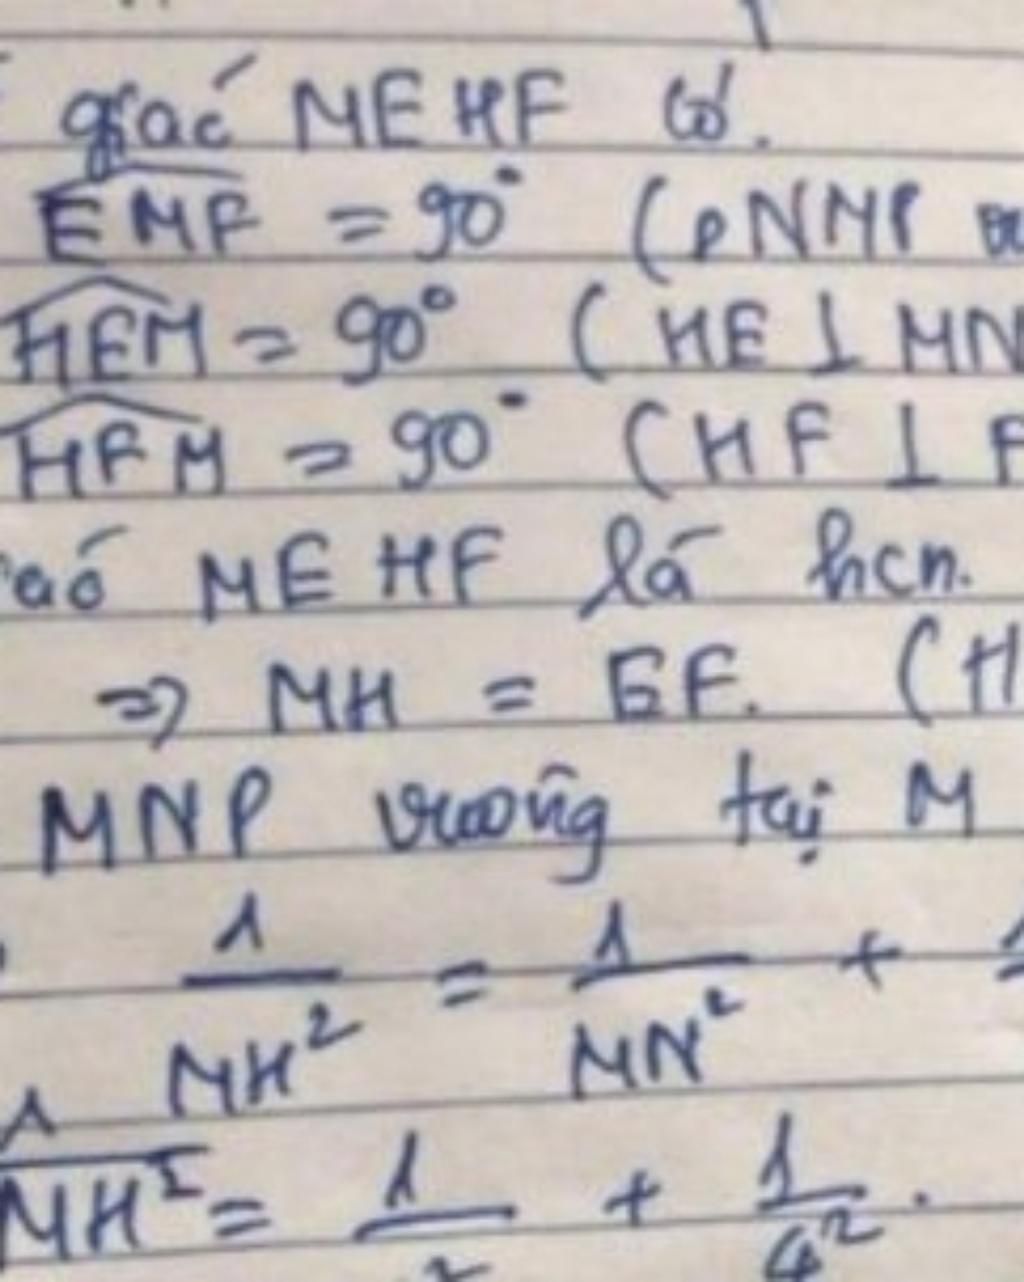 giác MEHF có.
EMF = 90° (ΔNMP
HEM = 90° (HE ⊥ MN
HFM = 90° (HF ⊥
MEHF là hcn.
=> MH = EF. (H
MNP vuông tại M
1/MH² = 1/MN² +
1/MH² = 1/ + 1/4².